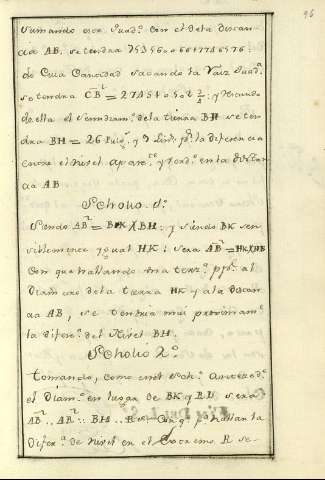 96
sumando este Quad.º con el de la distan-
cia AB, se tendra 75356006617746576:
de cuia cantidad sacando la raiz quad.ª
se tendra CB = 27454050 2/4: y restando
de ella el semidiam.º de la tierra BH se ten-
dra BH = 26 pulg.s y 9 lin.s p.ª la diferencia
entre el Nivel apar.te y verd.º en la distan-
cia AB
Scholio 1.º
Siendo AB² = BK X BH: y siendo BK sen-
siblemente ygual HK: sera AB² = HK X HB
Con que hallando una terz.ª pp.l al
Diametro de la tierra HK y a la distan-
cia AB, se tendra mui proximam.te
la difer.ª del Nivel BH.
Scholio 2.º
tomando, como en el Sch.º Anteced.te
el diam.º en lugar de BK y RL sera
AB² .. AR² :: BH .. R Con q.e p.ª hallar la
difer.ª de Nivel en el Extremo R se-